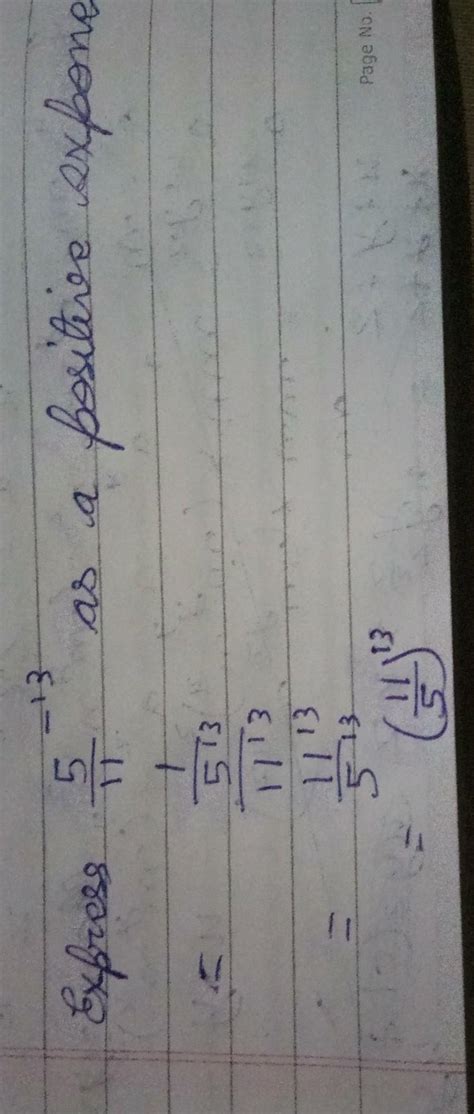 Page No.
Express 5/11^-13 as a positive expone
= 1/5^13/11^13
= 11^13/5^13
= (11/5)^13